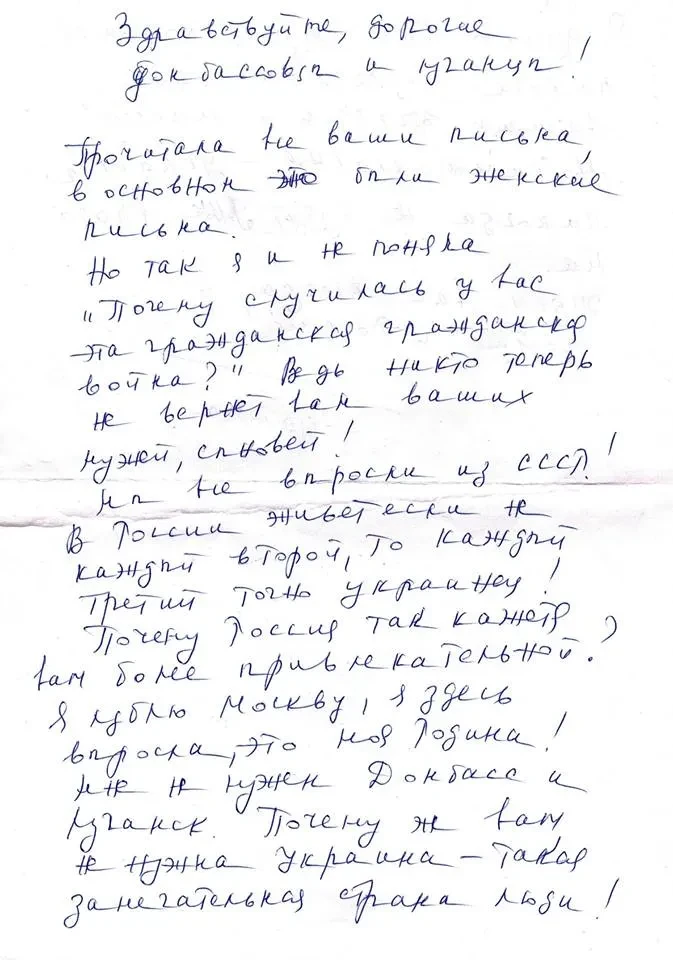 Здравствуйте, дорогие
донбассовцы и луганцы!
Прочитала все ваши письма,
в основном это были женские
письма.
Но так я и не поняла
"Почему случилась у вас
эта гражданская гражданская
война?" Ведь никто теперь
не вернет вам ваших
мужей, сыновей!
Мы все выросли из СССР!
В России живет если не
каждый второй, то каждый
третий точно украинец!
Почему Россия так кажется
вам более привлекательной?
Я люблю Москву, я здесь
выросла, это моя Родина!
Мне не нужен Донбасс и
Луганск. Почему ж вам
не нужна Украина – такая
замечательная страна люди!